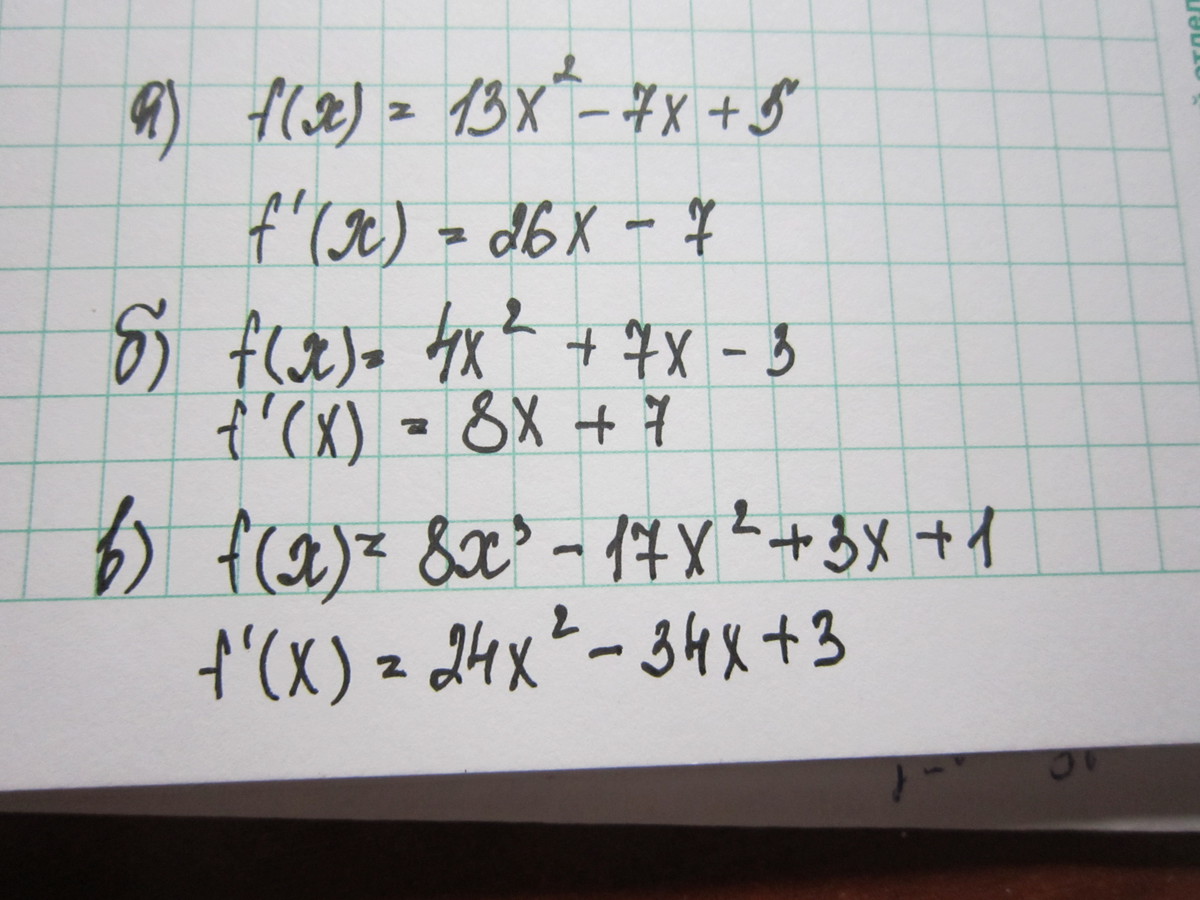 а) f(x) = 13x² - 7x + 5
f'(x) = 26x - 7
б) f(x) = 4x² + 7x - 3
f'(x) = 8x + 7
в) f(x) = 8x³ - 17x² + 3x + 1
f'(x) = 24x² - 34x + 3